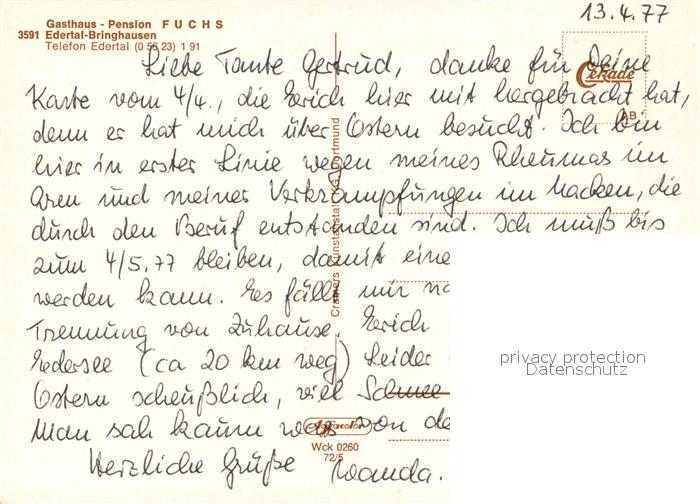 13.4.77
Gasthaus - Pension FUCHS
3591 Edertal-Bringhausen
Telefon Edertal (0 56 23) 1 91
Cekade
AB
Liebe Tante Gertrud, danke für Deine
Karte vom 4/4., die Erich hier mit hergebracht hat,
denn er hat mich über Ostern besucht. Ich bin
hier in erster Linie wegen meines Rheumas im
Arm und meiner Verkrampfungen im Nacken, die
durch den Beruf entstanden sind. Ich muß bis
zum 4/5.77 bleiben, damit eine
werden kann. Es fällt mir
Trennung von Zuhause. Erich
Edersee (ca 20 km weg) Leider
Ostern scheußlich, viel Schnee
Man sah kaum was von
Herzliche Grüße Wanda.
Cramers Kunstanstalt KG, Dortmund
Agfacolor
Wck 0260
72/5
privacy protection
Datenschutz